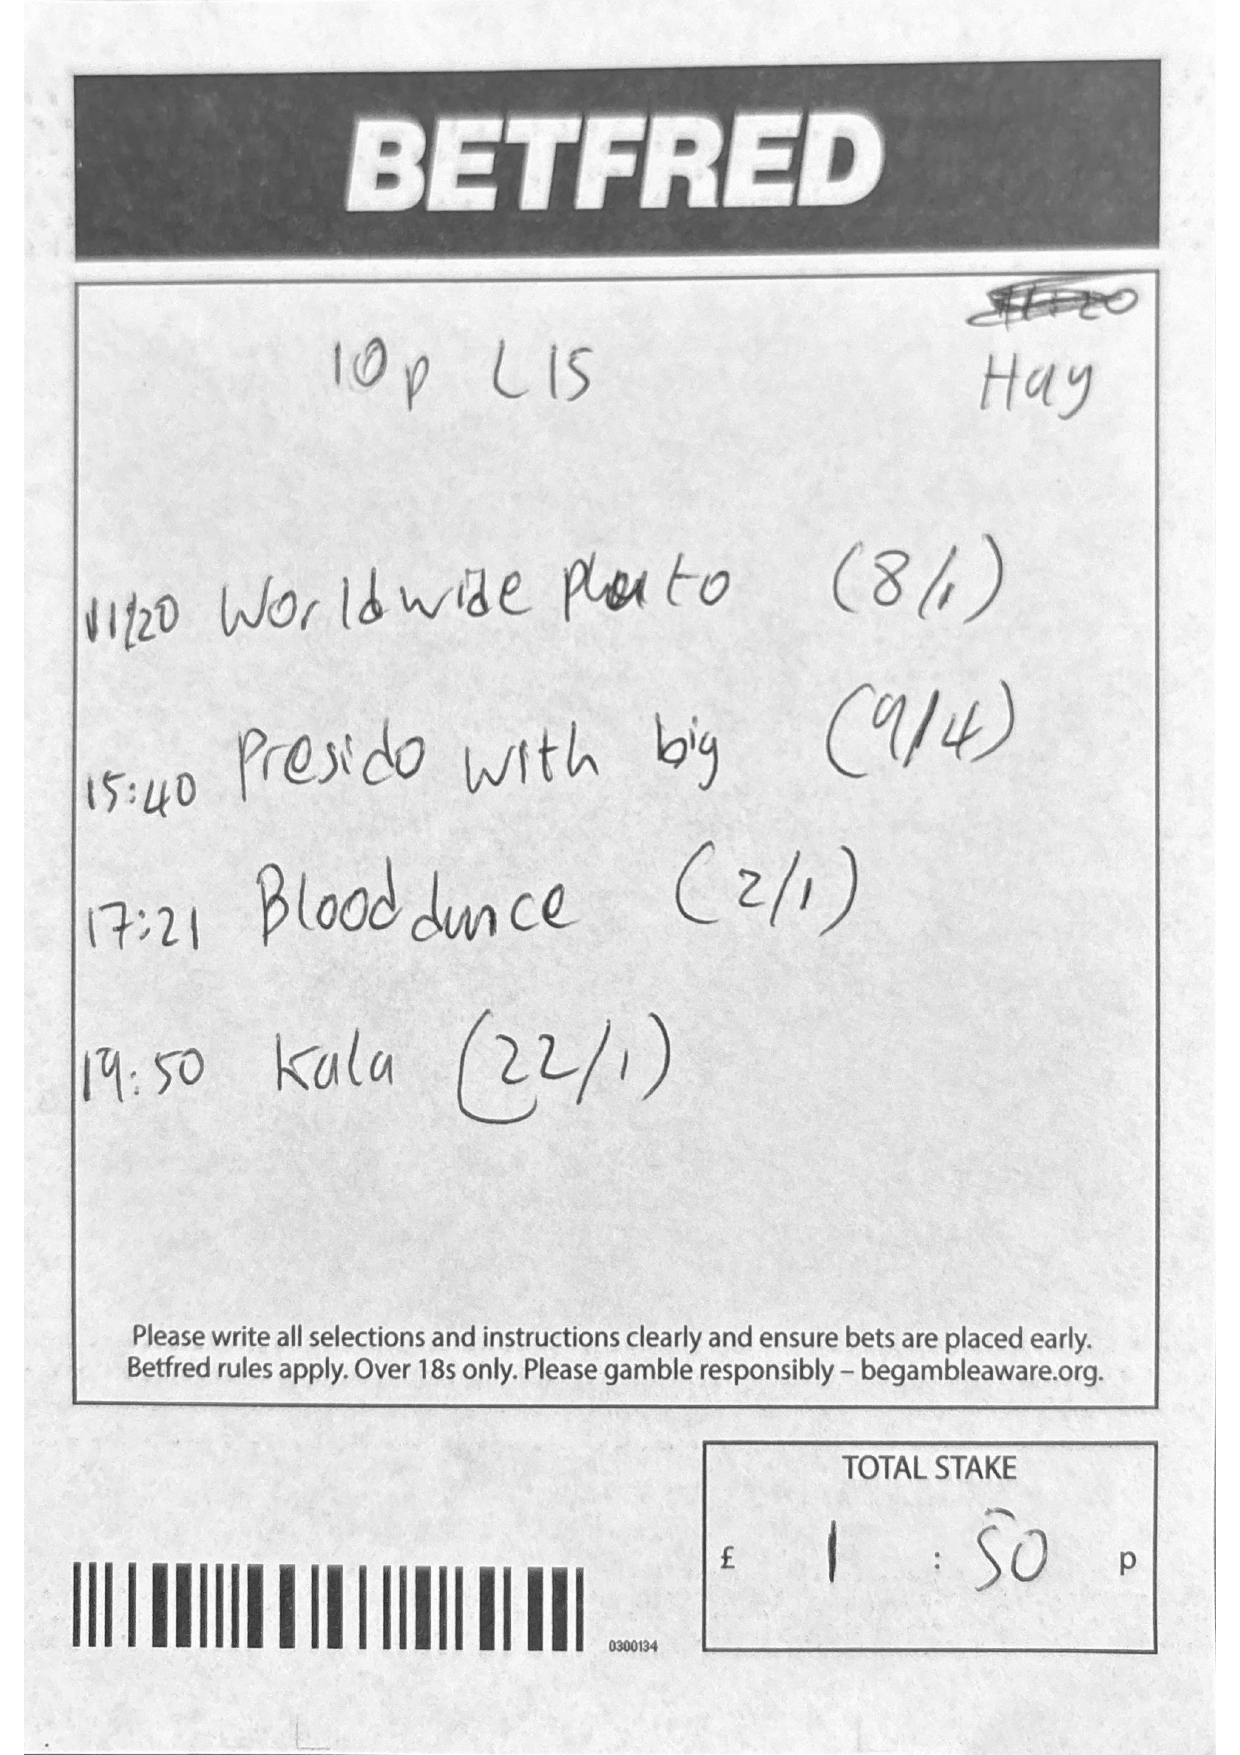 BETFRED
10p L15
Hay
11/20 Worldwide pluto (8/1)
15:40 Presido with big (9/4)
17:21 Blood dunce (2/1)
19:50 Kala (22/1)
Please write all selections and instructions clearly and ensure bets are placed early.
Betfred rules apply. Over 18s only. Please gamble responsibly – begambleaware.org.
TOTAL STAKE
£ 1 : 50 p
0300134